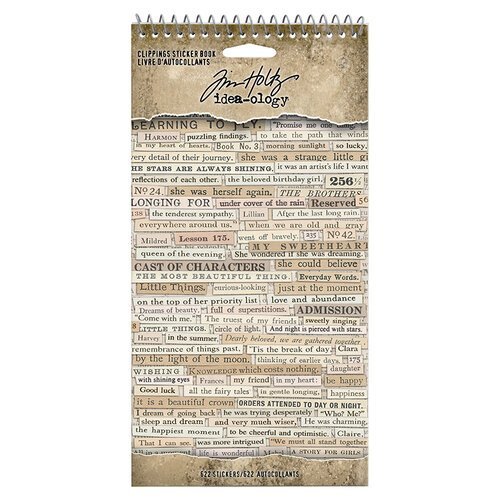 CLIPPINGS STICKER BOOK
LIVRE D'AUTOCOLLANTS
Tim Holtz
idea-ology
LEARNING TO FLY. "Promise me one
HARMON puzzling findings. to take the path that winds
in my heart of hearts. Book No. 3. morning sunlight so lucky.
very detail of their journey. she was a strange little gi
THE STARS ARE ALWAYS SHINING. it was an artist's life I want
reflections of each other. the beloved birthday girl. 256½
No 24. she was herself again. THE BROTHERS
LONGING FOR under cover of the rain Reserved
138 the tenderest sympathy. Lillian After the last long rain.
everywhere around us." when we are old and gray
Mildred Lesson 175. went off bravely. 235 No 42.
MY SWEETHEART
queen of the evening. She wondered if she was dreaming.
CAST OF CHARACTERS she could believe
THE MOST BEAUTIFUL THING. Everyday Words.
Little Things. curious-looking just at the moment
on the top of her priority list love and abundance
Beauty of dreams. full of superstitions. ADMISSION
"Come with me." The trust of my friends sweetly singing
LITTLE THINGS. circle of light. And night is pierced with stars.
Harvey in the summer. Dearly beloved, we are gathered together
remembrance of things past. 'Tis the break of day. Clara
by the light of the moon. thinking of earlier days. 175
WISHING KNOWLEDGE which costs nothing. daughter
with shining eyes Frances my friend in my heart: be happy
Good luck all the fairy tales in gentle longing. happiness
it is a beautiful crown ORDERS ATTENDED TO DAY OR NIGHT.
I dream of going back he was trying desperately "Who? Me?"
sleep and dream and very much wiser, He was charming.
the happiest moment to be cheerful and optimistic. Claire.
That I can see. was more intrigued "We must all stand together
MELODY OF LOVE. it was a fantastic dream Mabel A STORY FOR GIRLS
622 STICKERS/622 AUTOCOLLANTS